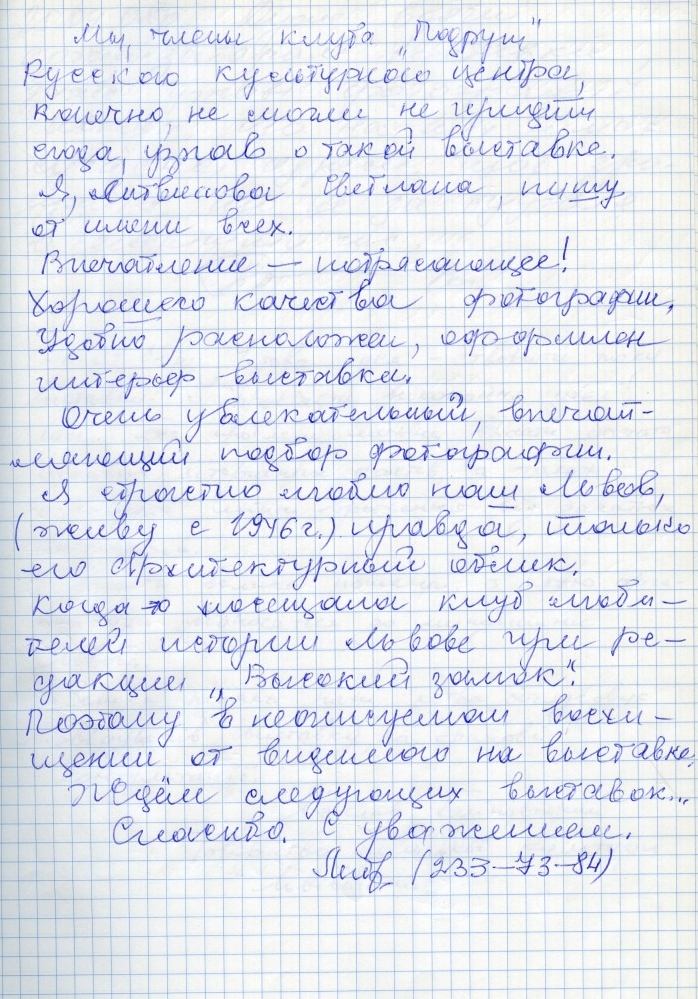 Мы, члены клуба „Подруги"
Русского культурного центра,
конечно, не могли не придти
сюда, узнав о такой выставке.
Я, Литвинова Светлана, пишу
от имени всех.
Впечатление — потрясающее!
Хорошего качества фотографии.
Удобно расположен, оформлен
интерьер выставки.
Очень увлекательный, впечат-
ляющий подбор фотографии.
Я страстно люблю наш Львов,
(живу с 1946 г.) правда, только
его архитектурный облик.
Когда-то посещала клуб люби-
телей истории Львова при ре-
дакции „Высокий замок".
Поэтому в неописуемом восхи-
щении от видимого на выставке.
Ждём следующих выставок...
Спасибо. С уважением.
(233-73-84)